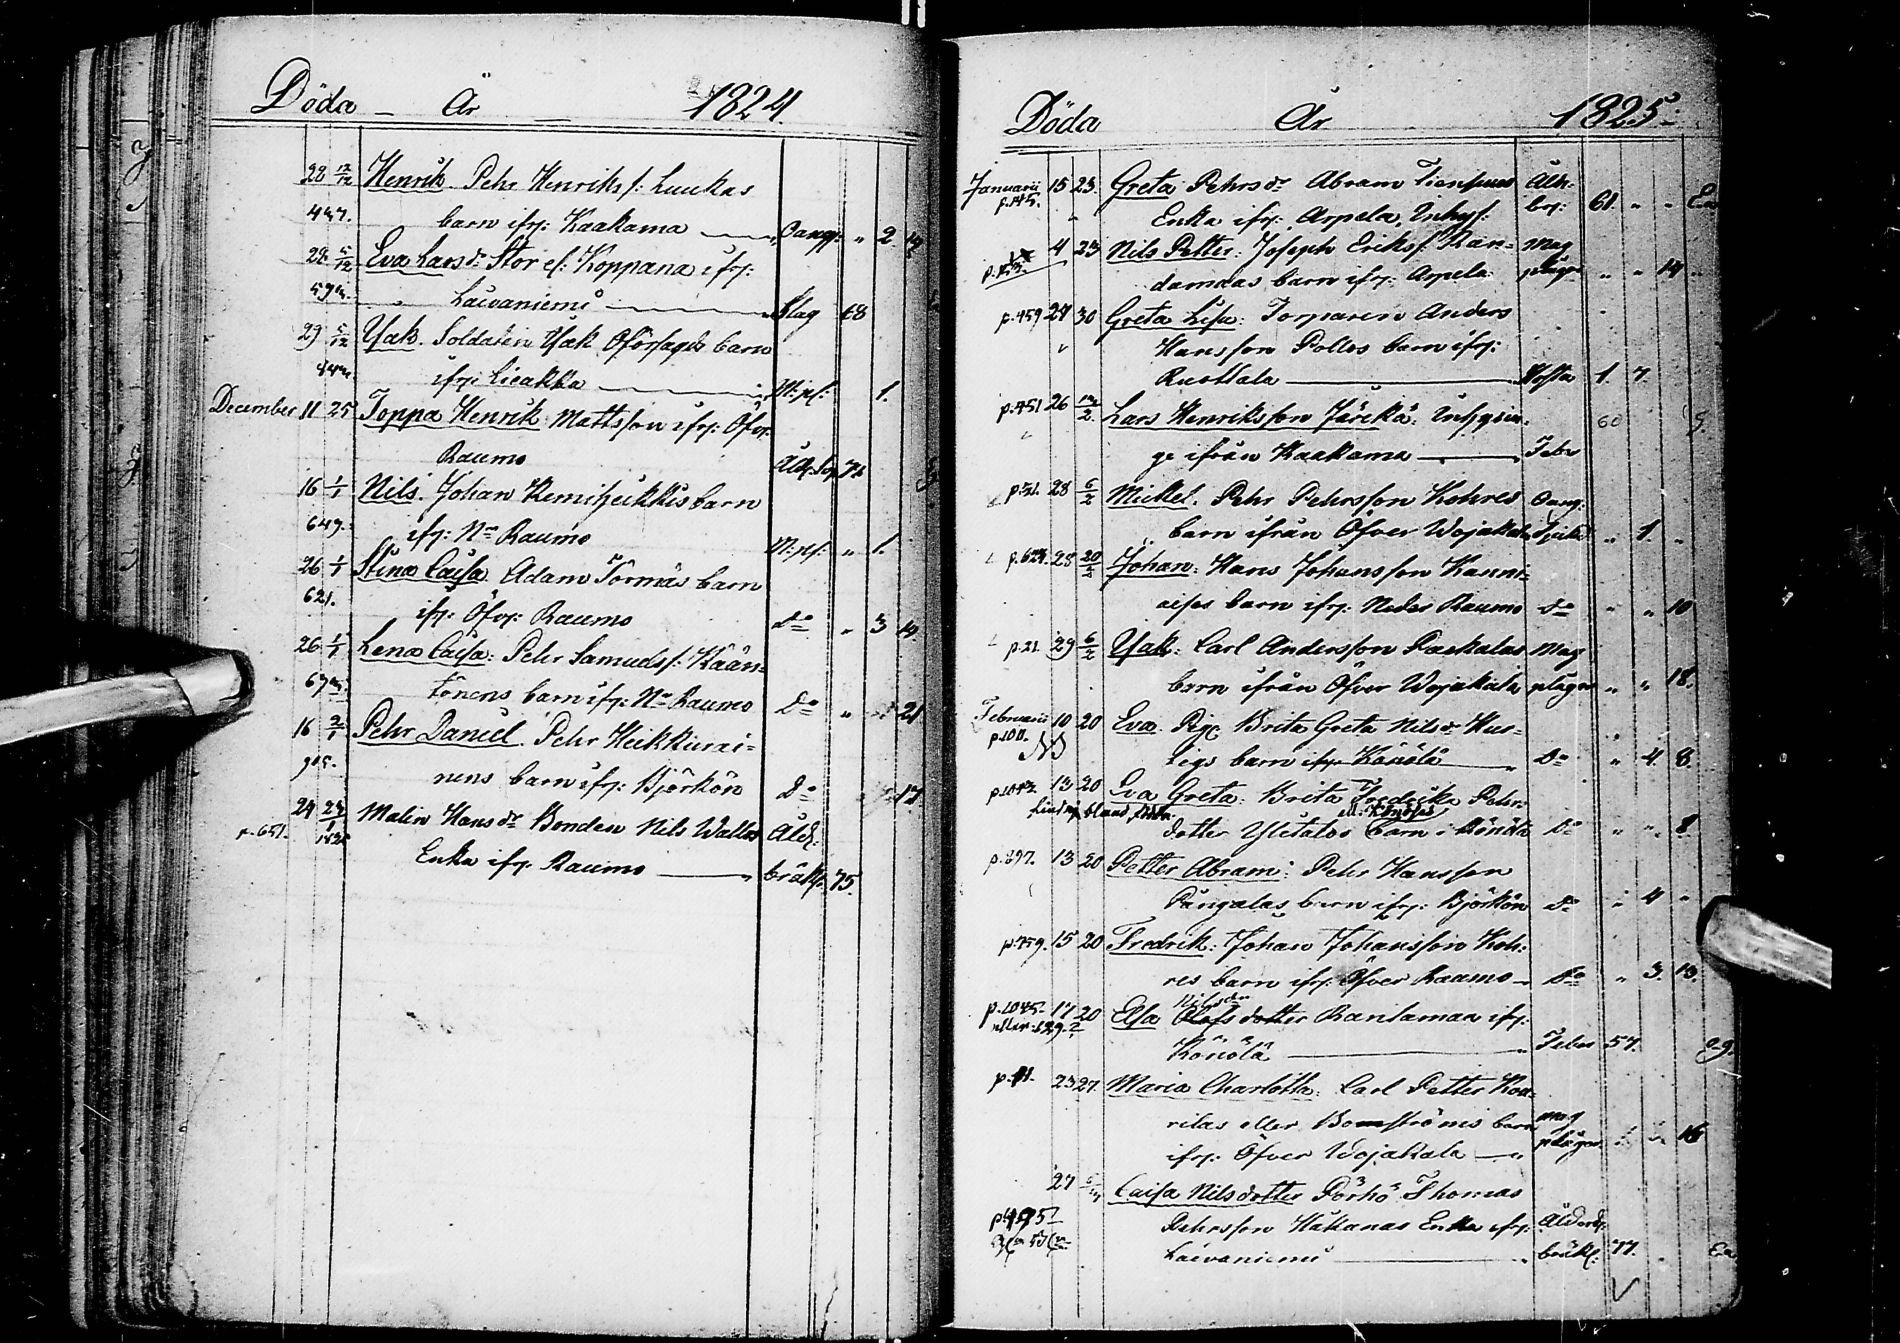 Döda År 1824.
28 12/12 Henrik. Pehr Henrikss: Luukas
437. barn ifr: Kaakama Oang: " 2
28 5/12 Eva Larsdr Stor el: Koppana ifr:
Laivaniemi Slag 68
29 5/12 Isak. Soldaten Isak Oförsagds barn
ifr: Lieakka M: pl: 1.
December 11 25 Toppa Henrik Mattsson ifr: Öfvr:
Raumo Åld: 72
16 1/1 Nils. Johan Kemiheikkis barn
649. ifr: Nr Raumo M: pl: " 1.
26 1/1 Stina Caisa Adam Törmäs barn
621. ifr: Öfvr: Raumo do " 3
26 1/1 Lena Caisa: Pehr Samuelss: Kään-
tönens barn ifr: Nr Raumo do " 21
16 2/1 Pehr Daniel. Pehr Heikkurai-
nens barn ifr: Björkön do 17
24 23/1 Malin Hansdr Bonden Nils Wallos Åld:
p. 651. Enka ifr: Raumo bräkl: 75.
Döda År 1825
Januarii 15 23. Greta Pehrsdr Abram Åld:
p. 145. Enka ifr: Arpela, Inhys: br: 61. " "
4 23 Nils Petter: Joseph Eriks: Ran- Mag
damaas barn ifr: Arpela plågor " " 14
p. 459 27 30 Greta Lisa: Torparen Anders
Hansson Pollos barn ifr:
Ruottala Hosta 1. 7.
p. 451 26 Lars Henriksson Järikä: Inhysin- 60
ge ifrån Kaakama Feber
p. 51. 28 6/2 Mickel. Pehr Pehrsson Kohres Oang:
barn ifrån Öfver Wojakala sjukd " 1. "
28 20/2 Johan: Hans Johansson Kanni-
aises barn ifr: Neder Raumo do " " 10
p. 21. 29 6/2 Isak: Carl Andersson Paekalas Mag
barn ifrån Öfver Wojakala plågor " " 18.
Februarii 10 20 Eva. Pig: Brita Greta Nilsdr Hus-
p. 1011. tigs barn ifr: Könölä do " 4 8.
p. 1043. 13 20 Eva Greta: Brita Fredrika Pehrs
dotter Ylitalos barn i Könölä do " " 8
p. 897. 13 20 Petter Abram: Pehr Hansson
Pångalas barn ifr: Björkön do " 4 "
p. 759. 15 20 Fredrik: Johan Johansson Koh-
res barn ifr: Öfver Raumo do " 3. 13.
Nilsdr
p. 1045. 17 20 Elsa Olofsdotter Rantamaa ifr:
eller 629.? Könölä Feber 57.
p. 41. 23 27. Maria Charlotta: Carl Petter Koa-
rilas eller Bomströms barn mag
ifr: Öfver Wojakala plågor 16
27 Caisa Nilsdotter Pörhö Thomas
Pehrsson Håkanas Enka ifr: Ålderd:
Laivaniemi bräkl: 77.